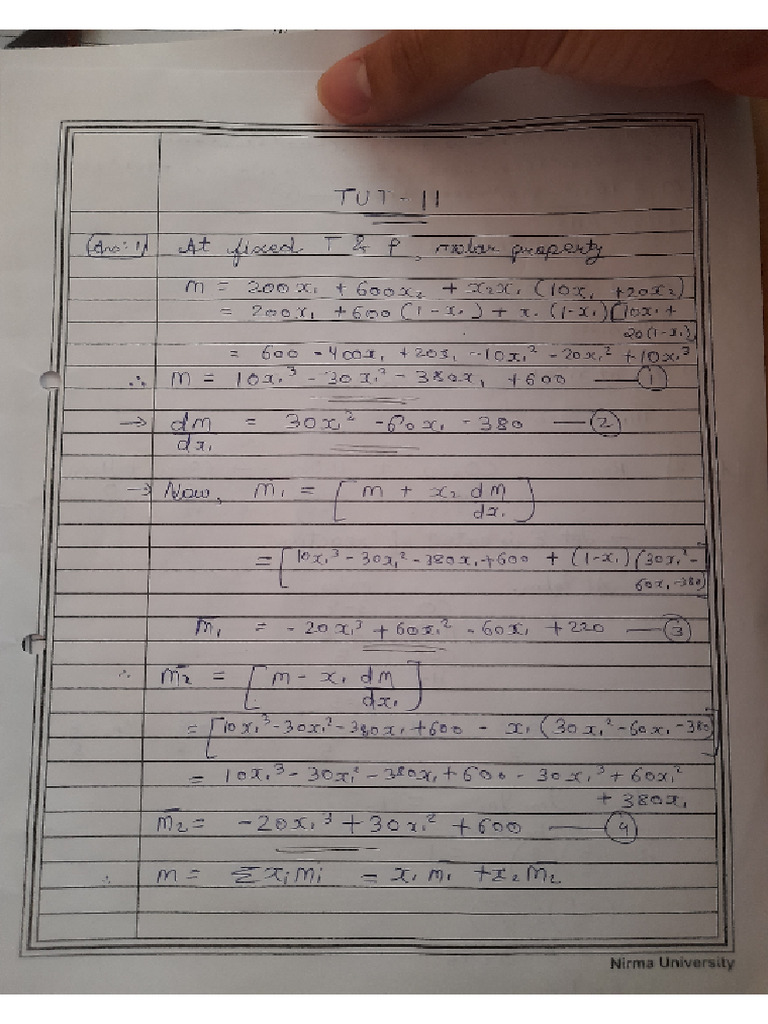 TUT - 11
Ans: 1) At fixed T & P, molar property
M = 200x₁ + 600x₂ + x₂x₁ (10x₁ + 20x₂)
= 200x₁ + 600 (1 - x₁) + x₁ (1-x₁) [10x₁ +
20(1-x₁)
= 600 - 400x₁ + 20x₁ - 10x₁² - 20x₁² + 10x₁³
∴ M = 10x₁³ - 30x₁² - 380x₁ + 600 —— ①
→ dM/dx₁ = 30x₁² - 60x₁ - 380 —— ②
→ Now, M̄₁ = [ M + x₂ dM/dx₁ ]
= [10x₁³ - 30x₁² - 380x₁ + 600 + (1-x₁) (30x₁² -
60x₁ - 380)
M̄₁ = - 20x₁³ + 60x₁² - 60x₁ + 220 —— ③
∴ M̄₂ = [ M - x₁ dM/dx₁ ]
= [10x₁³ - 30x₁² - 380x₁ + 600 - x₁ (30x₁² - 60x₁ - 380)]
= 10x₁³ - 30x₁² - 380x₁ + 600 - 30x₁³ + 60x₁²
+ 380x₁
M̄₂ = - 20x₁³ + 30x₁² + 600 —— ④
∴ M = Σ xᵢM̄ᵢ = x₁M̄₁ + x₂M̄₂
Nirma University